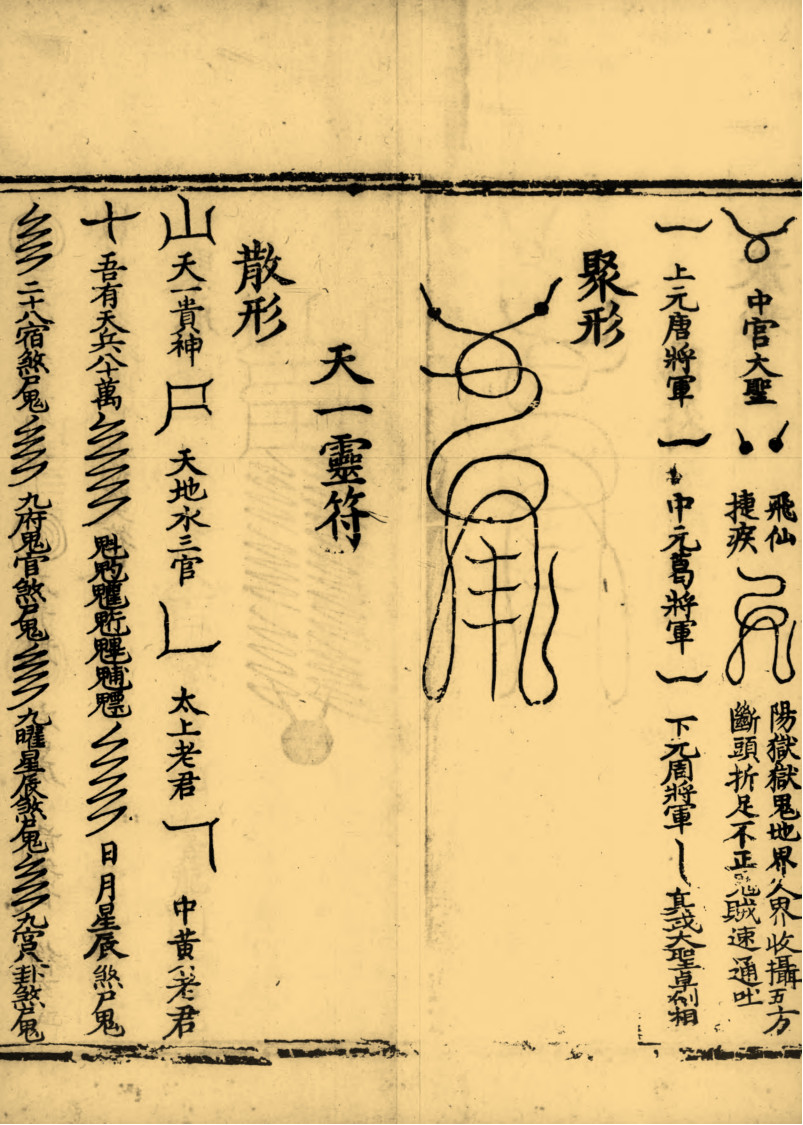 中官大聖
飛仙
捷疾
陽獄獄鬼地界人界收攝五方
斷頭折足不正鬼賊速通吐
上元唐將軍
中元葛將軍
下元周將軍
真武大聖卓劍相
聚形
天一靈符
散形
山 天一貴神
天地水三官
太上老君
中黃老君
十 吾有天兵八十萬
魁𩲃䰢魓𩳐魒
日月星辰煞尸鬼
二十八宿煞尸鬼
九府鬼官煞尸鬼
九曜星辰煞尸鬼
九宮八卦煞尸鬼